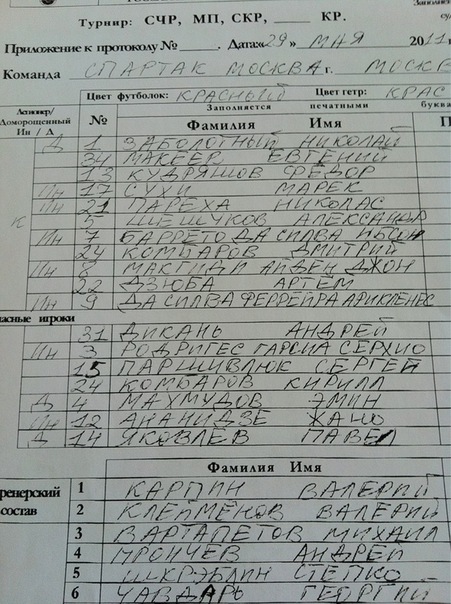 Турнир: СЧР, МП, СКР, ____ КР.
Приложение к протоколу № ____. Дата «29» МАЯ 2011 г
Команда СПАРТАК МОСКВА г. МОСКВ
Цвет футболок: КРАСНЫЙ Цвет гетр: КРАС
Легионер/Доморощенный Ин / Д № Заполняется печатными буква
Фамилия Имя
Д 1 ЗАБОЛОТНЫЙ НИКОЛАЙ
34 МАКЕЕВ ЕВГЕНИЙ
13 КУДРЯШОВ ФЕДОР
Ин 17 СУХИ МАРЕК
Ин 21 ПАРЕХА НИКОЛАС
К 5 ШЕШУКОВ АЛЕКСАНДР
Ин 7 БАРРЕТО ДА СИЛВА ИБСОН
24 КОМБАРОВ ДМИТРИЙ
Ин 8 МАКГИДИ АЙДЕН ДЖОН
22 ДЗЮБА АРТЕМ
Ин 9 ДА СИЛВА ФЕРРЕЙРА АРИКЛЕНЕС
асные игроки
31 ДИКАНЬ АНДРЕЙ
Ин 3 РОДРИГЕС ГАРСИА СЕРХИО
15 ПАРШИВЛЮК СЕРГЕЙ
24 КОМБАРОВ КИРИЛЛ
Д 4 МАХМУДОВ ЭМИН
Ин 12 АНАНИДЗЕ ЖАНО
Д 14 ЯКОВЛЕВ ПАВЕЛ
Фамилия Имя
ренерский состав
1 КАРПИН ВАЛЕРИЙ
2 КЛЕЙМЁНОВ ВАЛЕРИЙ
3 ВАРТАПЕТОВ МИХАИЛ
4 ГРОНЧЕВ АНДРЕЙ
5 ШКРЭБЛИН СТЕПКО
6 ЧАВДАРЬ ГЕОРГИЙ